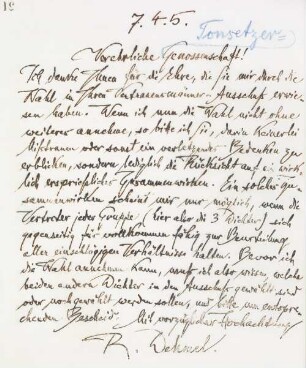 12
7.4.5.
Tonsetzer
Verehrliche Genossenschaft!
Ich danke Ihnen für die Ehre, die Sie mir durch die
Wahl in Ihren Vertrauensmänner-Ausschuß erwie-
sen haben. Wenn ich nun die Wahl nicht ohne
weiteres annehme, so bitte ich Sie, darin keinerlei
Mißtrauen oder sonst ein verletzendes Bedenken zu
erblicken, sondern lediglich die Rücksicht auf ein wirk-
lich ersprießliches Zusammenwirken. Ein solches Zu-
sammenwirken scheint mir nur möglich, wenn die
Vertreter jeder Gruppe (hier also die 3 Dichter) sich
gegenseitig für vollkommen fähig zur Beurteilung
aller einschlägigen Verhältnisse halten. Bevor ich
die Wahl annehmen kann, muß ich also wissen, welche
beiden andern Dichter in den Ausschuß gewählt sind
oder noch gewählt werden sollen, und bitte um entspre-
chenden Bescheid. Mit vorzüglicher Hochachtung
R. Dehmel.